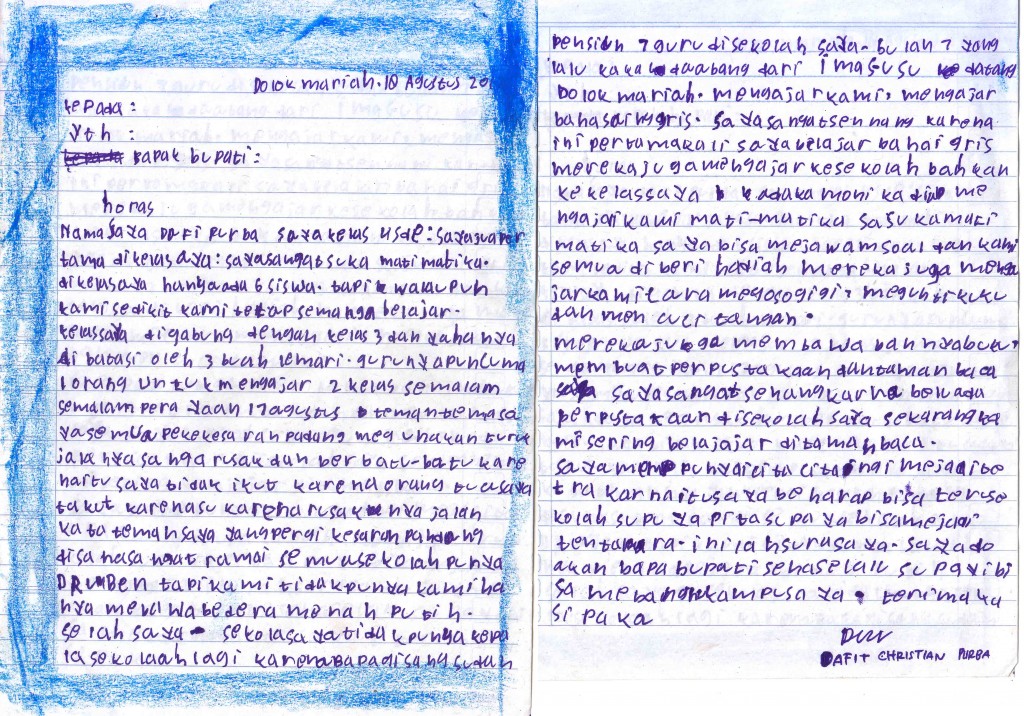 Dolok mariah. 10 Agustus 20
kepada :
yth :
bapak bupati :
horas
Nama saya Dafi purba saya kelas 4 sde : saya juara per
tama dikelasaya : sayasangatsuka matimatika.
dikelasaya hanyaada 6 siswa. tapik walaupun
kamisedikit kami tetap semanga belajar.
kelassaya digabung dengan kelas 3 dan yahanya
di batasi oleh 3 buah lemari. gurunyapuncuma
1 orang untukmengajar 2 kelas semalam
semalam pera yaan 17 agustus temantemasa
yasemua pekekesa ranpadang megunakan turuk
jalannyasangarusak dan berbatu-batu kare
naitu saya tidak ikut karenaorang tuasaya
takut karenasu karenarusak nya jalan
kata temansaya yangpergi kesaran padang
disanasangat ramai semuasekolah punya
DRUMBEN tapikami tidakpunya kamiha
nya membawabedera merah putih.
selah saya sekolasayatidakpunya kepa
lasekolaah lagi karenabapagisangsudah
pensiun 7 guru disekolah saya. bulan 7 yang
lalu kakak daabang dari imagusu datang
Dolok mariah. mengajarkami, mengajar
bahasaingris. sayasangatsennang karena
ini pertamakali sayabelajar bahaigris
merekajugamengajar kesekolah bahkan
kekelassaya kadaka moni kadi me
ngajarikami mati-matika sasukamati
matika saya bisa mejawamsoal dankami
semua diberi hadiah mereka juga menga
jarkamicara megosogigi, megunti kuku
dan mencuci tangan.
merekajuga membawa bannyabuu,
membuatperpustakaan dantaman baca
sayasangatsenangkarna belumada
perpustakaan disekolah saya sekarangka
misering belajajar ditamanbaca.
saya punyaicita citaingimejaite
tra karnaitusaya beharap bisa teruse
kolah supuyapitasupa yabisamejadi
tentara. inilahsurasaya. sayado
akan bapabupati sehaselalu supayibi
sa mebanunkampusaya. terimaka
si paka
DAFIT CHRISTIAN PURBA